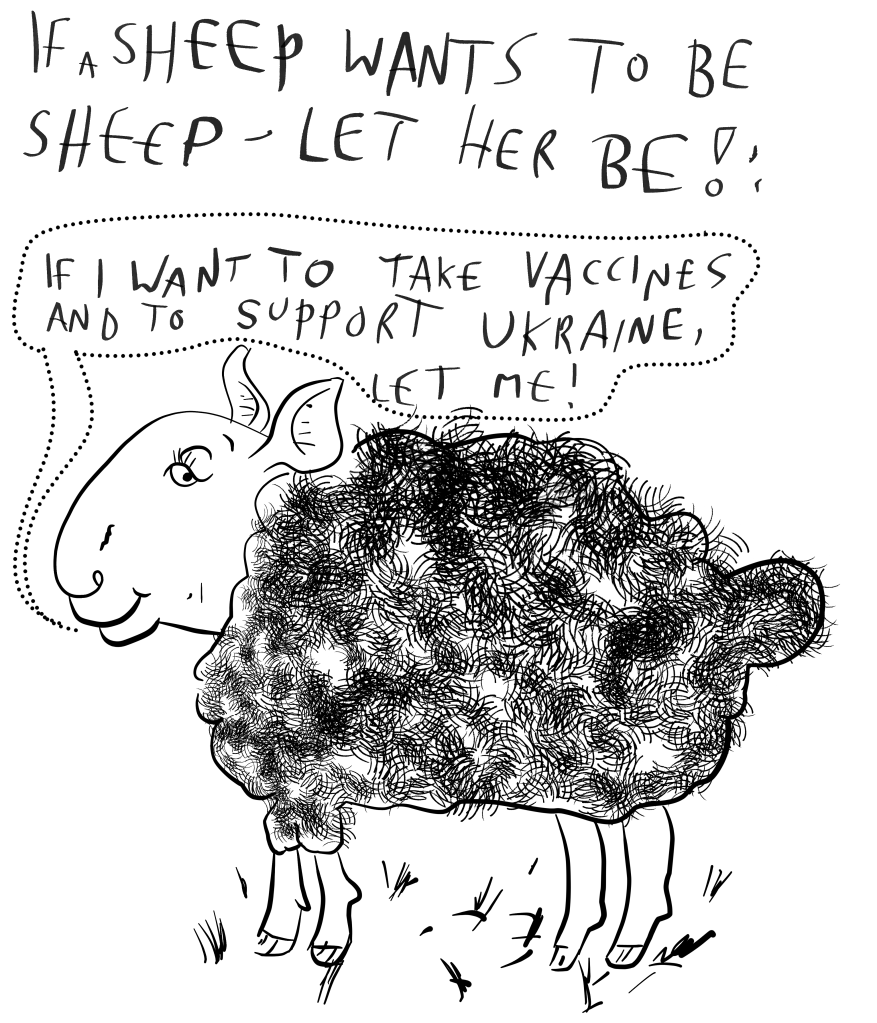 IF A SHEEP WANTS TO BE
SHEEP - LET HER BE!
IF I WANT TO TAKE VACCINES
AND TO SUPPORT UKRAINE,
LET ME!